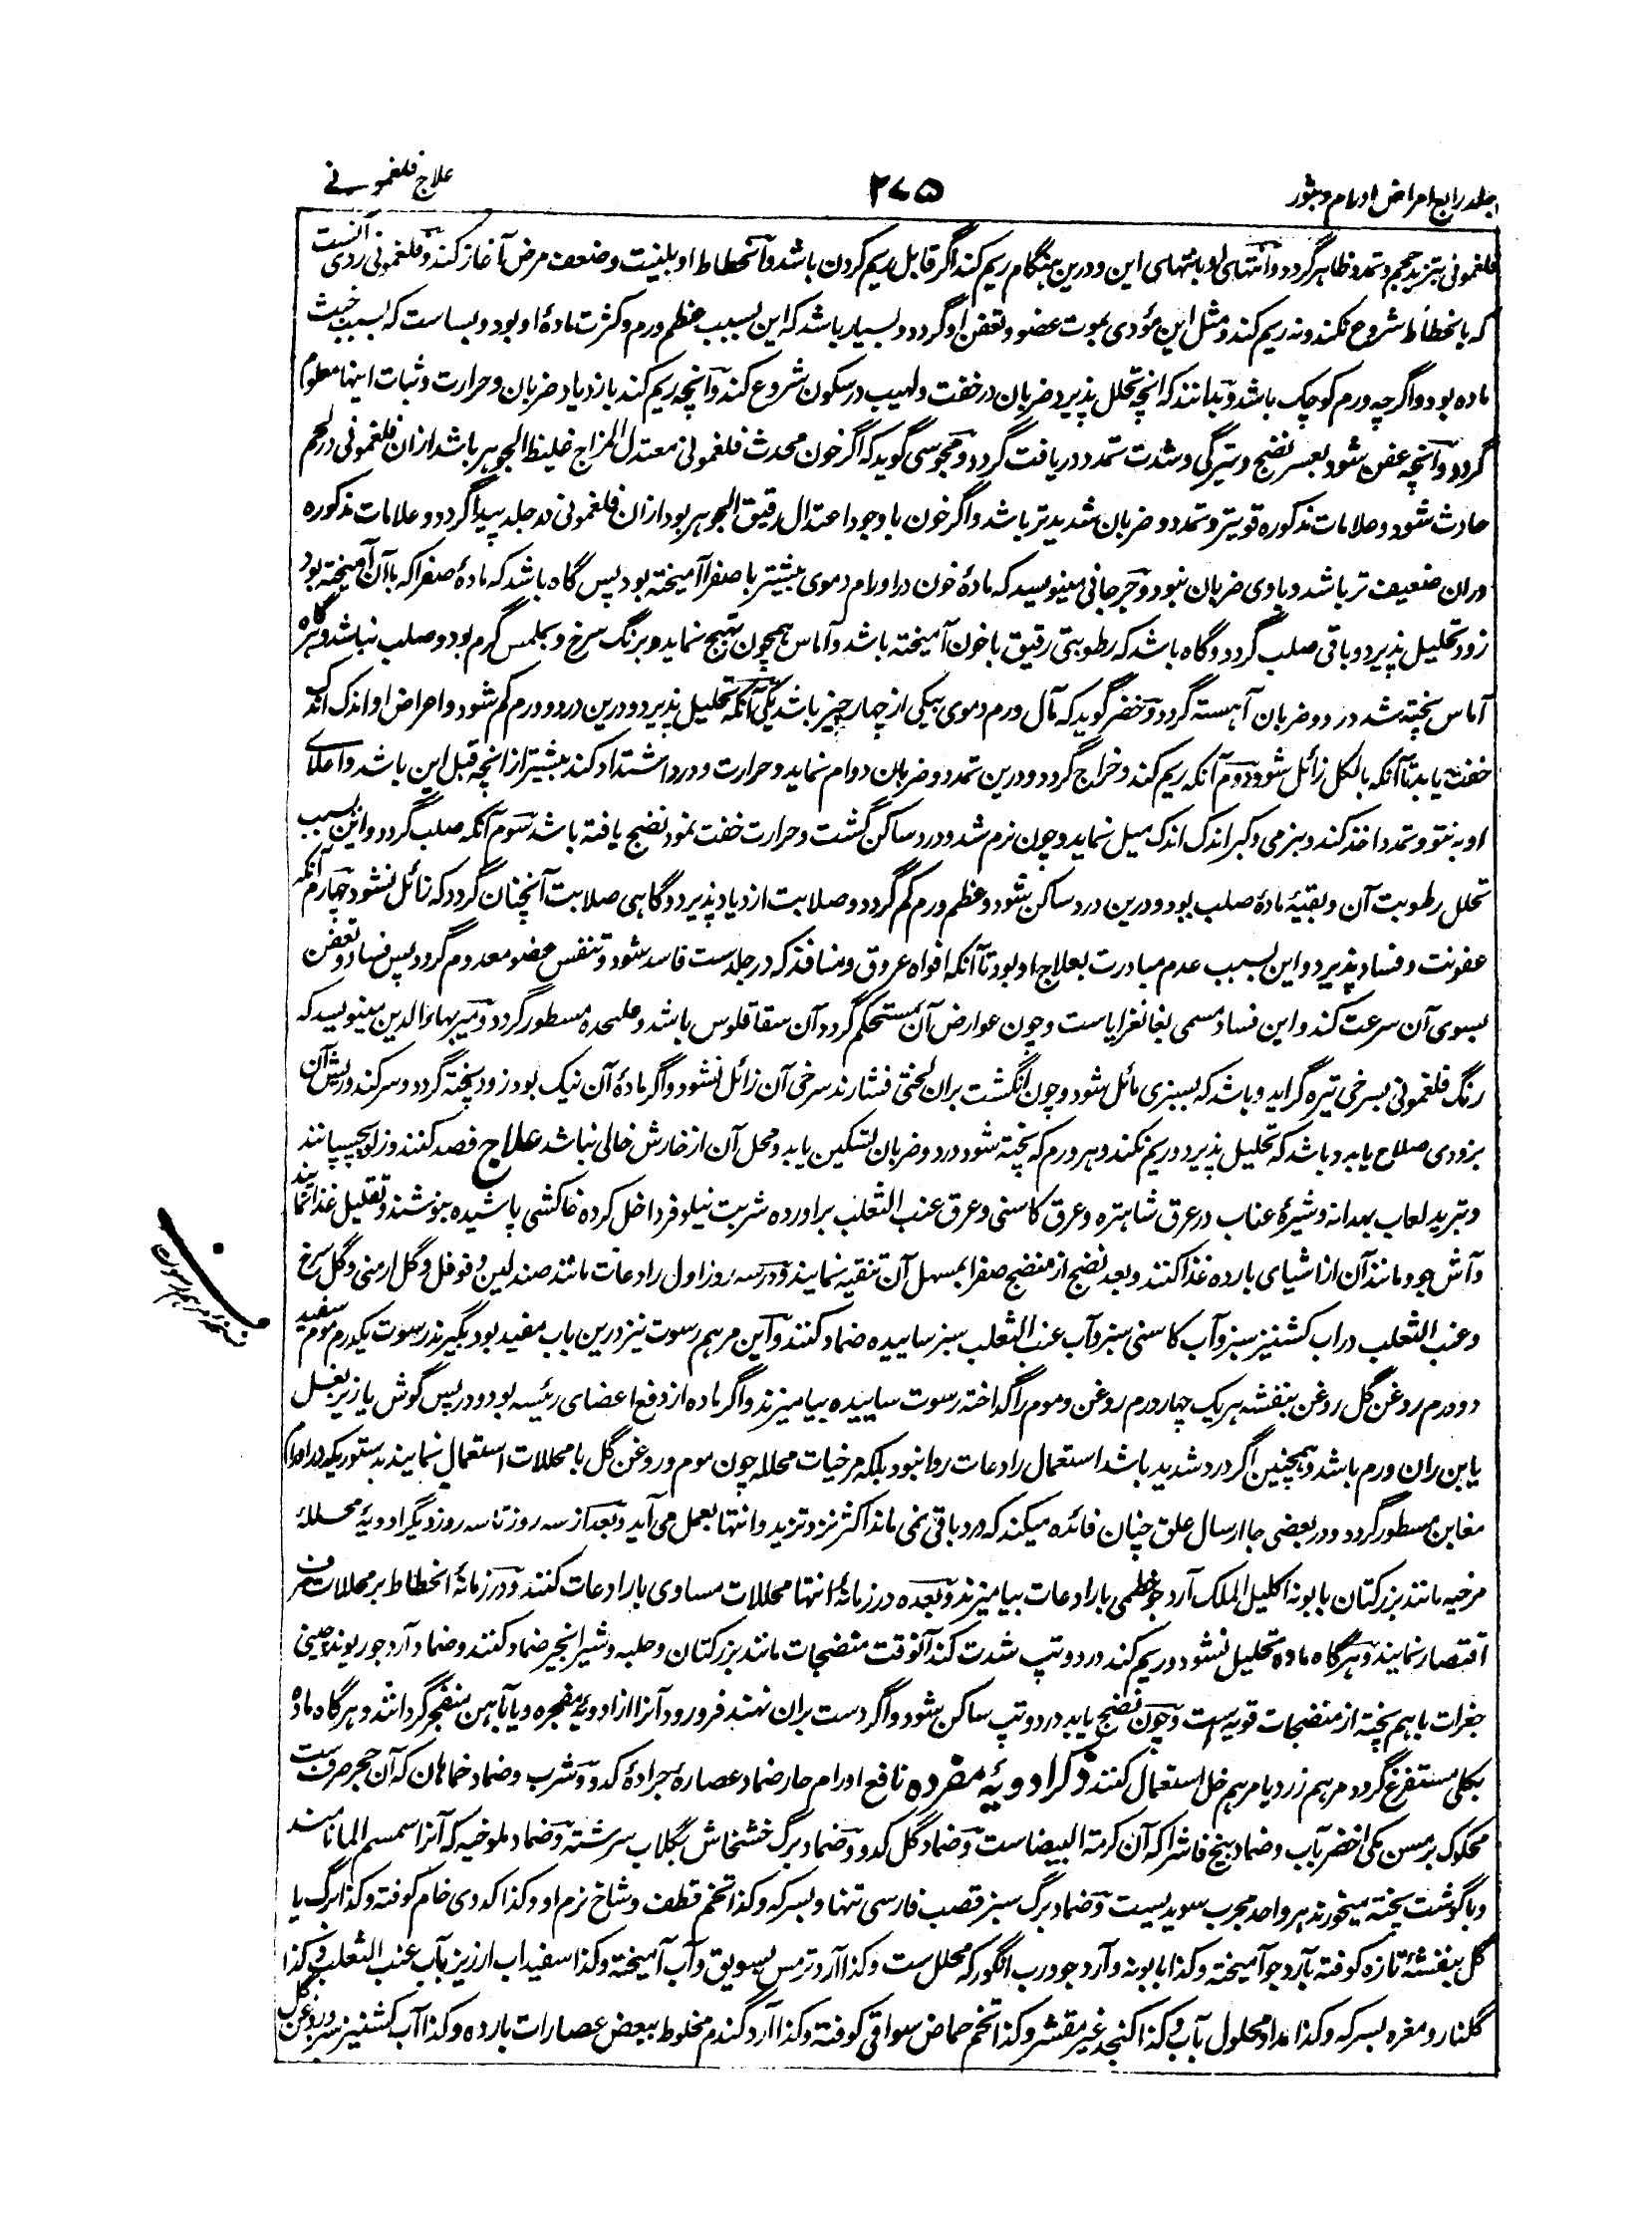 جلد رابع امراض اورام و بثور
۲۷۵
علاج فلغمونی
فلغمونی بتزید حجم و تمدد ظاهر گردد و انتهای او بانتهای این و درین هنگام ریم کند اگر قابل ریم کردن باشد و انحطاط او بلینت و ضعف مرض آغاز کند و فلغمونی ردی آنست
که بانحطاط شروع نکند و نه ریم کند و مثل این مؤدی بموت عضو و تعفن او گردد و بسیار باشد که این بسبب عظم ورم و کثرت مادهٔ او بود و بساست که بسبب خبث
ماده بود و اگرچه ورم کوچک باشد و بدانند که انچه تحلل پذیرد ضربان در خفت و لهیب در سکون شروع کند و آنچه ریم کند بازدیاد ضربان و حرارت و ثبات اینها معلوم
گردد و آنچه عفن شود بعسر نضج و تیرگی و شدت تمدد دریافت گردد و مجوسی گوید که اگر خون محدث فلغمونی معتدل المزاج غلیظ الجوهر باشد ازان فلغمونی در لحم
حادث شود و علامات مذکوره قویتر و تمدد و ضربان شدیدتر باشد و اگر خون با وجود اعتدال رقیق الجوهر بود ازان فلغمونی در جلد پیدا گردد و علامات مذکوره
دران ضعیف تر باشد و باوی ضربان نبود و جرجانی مینویسد که مادهٔ خون در اورام دموی بیشتر با صفرا آمیخته بود پس گاه باشد که مادهٔ صفرا که باآن آمیخته بود
زود تحلیل پذیرد و باقی صلب گردد و گاه باشد که رطوبتی رقیق با خون آمیخته باشد و آماس همچون تهبج نماید و برنگ سرخ و بلمس گرم بود و صلب نباشد و هرگاه
آماس پخته شد درد و ضربان آهسته گردد و خضر گوید که مآل ورم دموی بیکی از چهار چیز باشد یکی آنکه تحلیل پذیرد و درین درد و ورم کم شود و اعراض او اندک اندک
خفت یابد تا آنکه بالکل زائل شود دوم آنکه ریم کند و خراج گردد و درین تمدد و ضربان دوام نماید و حرارت و درد اشتداد کند بیشتر از انچه قبل این باشد و اعلای
او به نتو و تمدد اخذ کند و بنرمی و کبر اندک اندک میل نماید و چون نرم شد و درد ساکن گشت و حرارت خفت نمود نضج یافته باشد سوم آنکه صلب گردد و این بسبب
تحلل رطوبت آن و بقیهٔ مادهٔ صلب بود و درین درد ساکن شود و عظم ورم کم گردد و صلابت ازدیاد پذیرد و گاهی صلابت آنچنان گردد که زائل نشود چهارم آنکه
عفونت و فساد پذیرد و این بسبب عدم مبادرت بعلاج او بود تا آنکه افواه عروق و منافذ که در جلدست فاسد شود و تنفس عضو معدوم گردد پس فساد و تعفن
بسوی آن سرعت کند و این فساد مسمی بغانغرایاست و چون عوارض آن مستحکم گردد آن سقاقلوس باشد و علیحده مسطور گردد و میر بهاءالدین مینویسد که
رنگ فلغمونی بسرخی تیره گراید و باشد که بسبزی مائل شود و چون انگشت بران لختی فشارند سرخی آن زائل نشود و اگر مادهٔ آن نیک بود زود پخته گردد و سر کند و ریش آن
بزودی صلاح یابد و باشد که تحلیل پذیرد و ریم نکند و هر ورم که پخته شود درد و ضربان تسکین یابد و محل آن از خارش خالی نباشد علاج فصد کنند و زلو بچسپانند
و تبرید لعاب بهدانه و شیرهٔ عناب در عرق شاهتره و عرق کاسنی و عرق عنب الثعلب براورده شربت نیلوفر داخل کرده خاکشی پاشیده بنوشند و تقلیل غذا نمایند
و آش جو و مانند آن از اشیای بارده غذا کنند و بعد نضج از منضج صفرا بمسهل آن تنقیه نمایند و در سه روز اول رادعات مانند صندلین و فوفل و گل ارمنی و گل سرخ
و عنب الثعلب در اب کشنیز سبز و آب کاسنی سبز و آب عنب الثعلب سبز ساییده ضماد کنند و این مرهم رسوت نیز درین باب مفید بود بگیرند رسوت یکدرم موم سفید
نسخهٔ مرهم رسوت
دو درم روغن گل روغن بنفشه هر یک چهار درم روغن و موم را گداخته رسوت ساییده بیامیزند و اگر ماده از دفع اعضای رئیسه بود و در پس گوش یا زیر بغل
یا بن ران ورم باشد و همچنین اگر درد شدید باشد استعمال رادعات روا نبود بلکه مرخیات محلله چون موم و روغن گل با محللات استعمال نمایند بدستوریکه در اورام
مغابن مسطور گردد و در بعضی جا ارسال علق چنان فائده میکند که درد باقی نمی ماند اکثر نزد تزید و انتها بعمل می آید و بعد از سه روز تا سه روز دیگر ادویهٔ محللهٔ
مرخیه مانند بزر کتان بابونه اکلیل الملک آرد جو خطمی بارادعات بیامیزند و بعده در زمانهٔ انتها محللات مساوی بارادعات کنند و در زمانهٔ انحطاط بر محللات صرف
اقتصار نمایند و هرگاه ماده تحلیل نشود و ریم کند درد و تپ شدت کند آنوقت منضجات مانند بزر کتان و حلبه و شیر انجیر ضماد کنند و ضماد آرد جو ریوند چینی
جغرات باهم پخته از منضجات قویه است و چون نضج یابد درد و تپ ساکن شود و اگر دست بران نهند فرو رود آنرا از ادویهٔ مفجره و یا بآهن منفجر گردانند و هرگاه ماده
بکلی مستفرغ گردد مرهم زرد یا مرهم خل استعمال کنند ذکر ادویهٔ مفرده نافع اورام حار ضماد عصارهٔ جرادهٔ کدو و شرب و ضماد خماهان که آن حجر صرفست
محکوک بر مسن مکی اخضر بآب و ضماد بیخ فاشرا که آن کرمة البیضاست و ضماد گل کدو و ضماد برگ خشخاش بگلاب سرشته و ضماد ملوخیه که آنرا سمسم المانامند
و با گوشت پخته میخورند هر واحد مجرب سویدیست و ضماد برگ سبز قصب فارسی تنها و بسرکه و کذا تخم قطف و شاخ نرم او و کذا کدوی خام کوفته و کذا برگ یا
گل بنفشهٔ تازه کوفته بآرد جو آمیخته و کذا بابونه و آرد جو و رب انگور که محلل ست و کذا آرد ترمس بسویق و آب آمیخته و کذا سفیداب ارزیز بآب عنب الثعلب و کذا
گلنار و مغره بسرکه و کذا مداد محلول بآب و کذا کنجد غیر مقشر و کذا تخم حماض سواقی کوفته و کذا آرد گندم مخلوط ببعض عصارات بارده و کذا آب کشنیز سبز و روغن گل